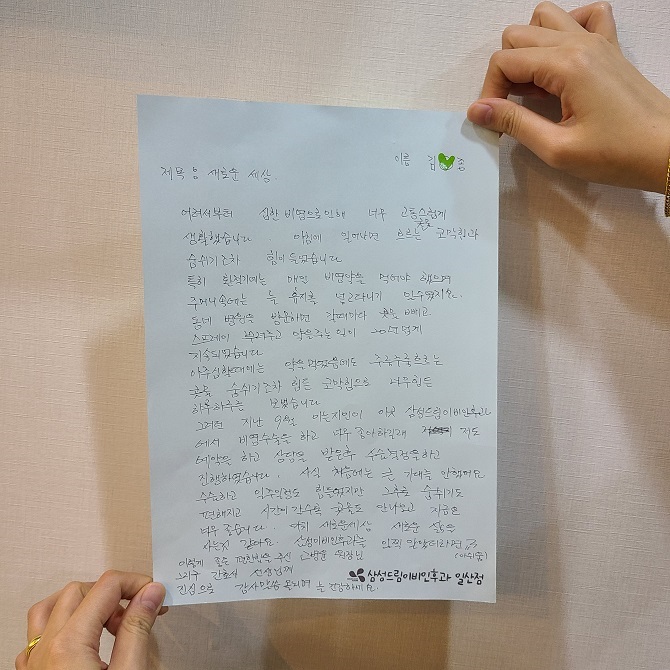 이름 김 종
제목 : 새로운 세상.
어려서부터 심한 비염으로 인해 너무 고통스럽게
생활했습니다. 아침에 일어나면 흐르는 콧물 코막힘과
숨쉬기조차 힘이 들었습니다
특히 환절기에는 매일 비염약을 먹어야 했으며
주머니속에는 늘 휴지를 넣고다니기 일수였지요.
동네 병원을 방문하면 갈때마다 콧물 빼고
스프레이 뿌려주고 약을주는일이 20년 넘게
지속되었습니다
아주심할때에는 약을 먹었음에도 주륵주륵흐르는
콧물 숨쉬기조차 힘든 코막힘으로 너무힘든
하루하루를 보냈습니다
그러던 지난 9월 아는지인이 이곳 삼성드림이비인후과
에서 비염수술을 하고 너무 좋아하길래 저도
예약을 하고 상담을 받은후 수술결정을하고
진행하였습니다. 사실 처음에는 큰 기대를 안했어요
수술하고 일주일정도 힘들었지만 그후로 숨쉬기도
편해지고 시간이 갈수록 콧물도 안나오고 지금은
너무 좋습니다. 마치 새로운세상 새로운 삶을
사는것 같아요. 삼성이비인후과를 일찍 알았더라면
(아쉬움)
이렇게 좋은 편안함을 주신 원장님
그리구 간호사 선생님께
진심으로 감사말씀 올리며 늘 건강하세요.
삼성드림이비인후과 일산점